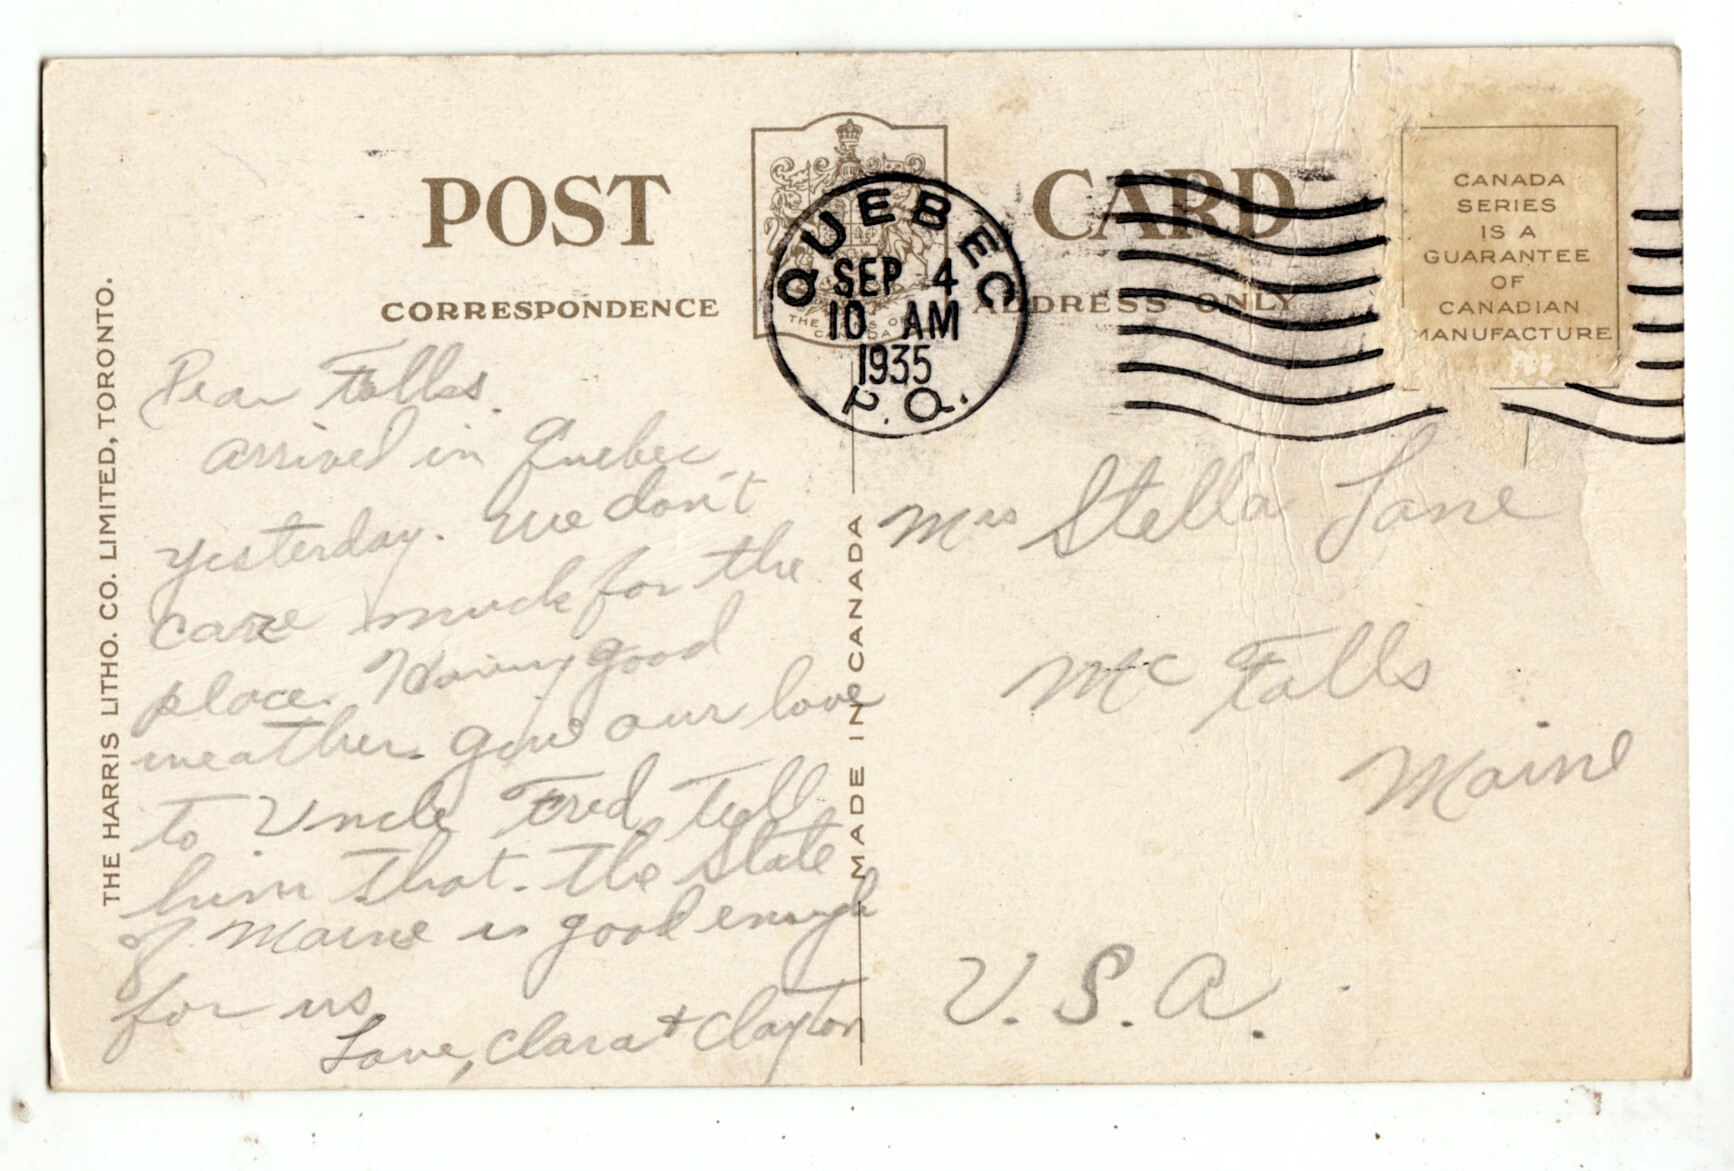 POST CARD
CORRESPONDENCE
ADDRESS ONLY
THE HARRIS LITHO. CO. LIMITED, TORONTO.
MADE IN CANADA
QUEBEC
SEP 4
10 AM
1935
P.Q.
CANADA
SERIES
IS A
GUARANTEE
OF
CANADIAN
MANUFACTURE
Dear Folks.
arrived in Quebec
yesterday. We don't
care much for the
place. Having good
weather. Give our love
to Uncle Fred, tell
him that the State
of Maine is good enough
for us
Love, Clara + Clayton
Mrs Stella Lane
Mc Falls
Maine
U.S.A.